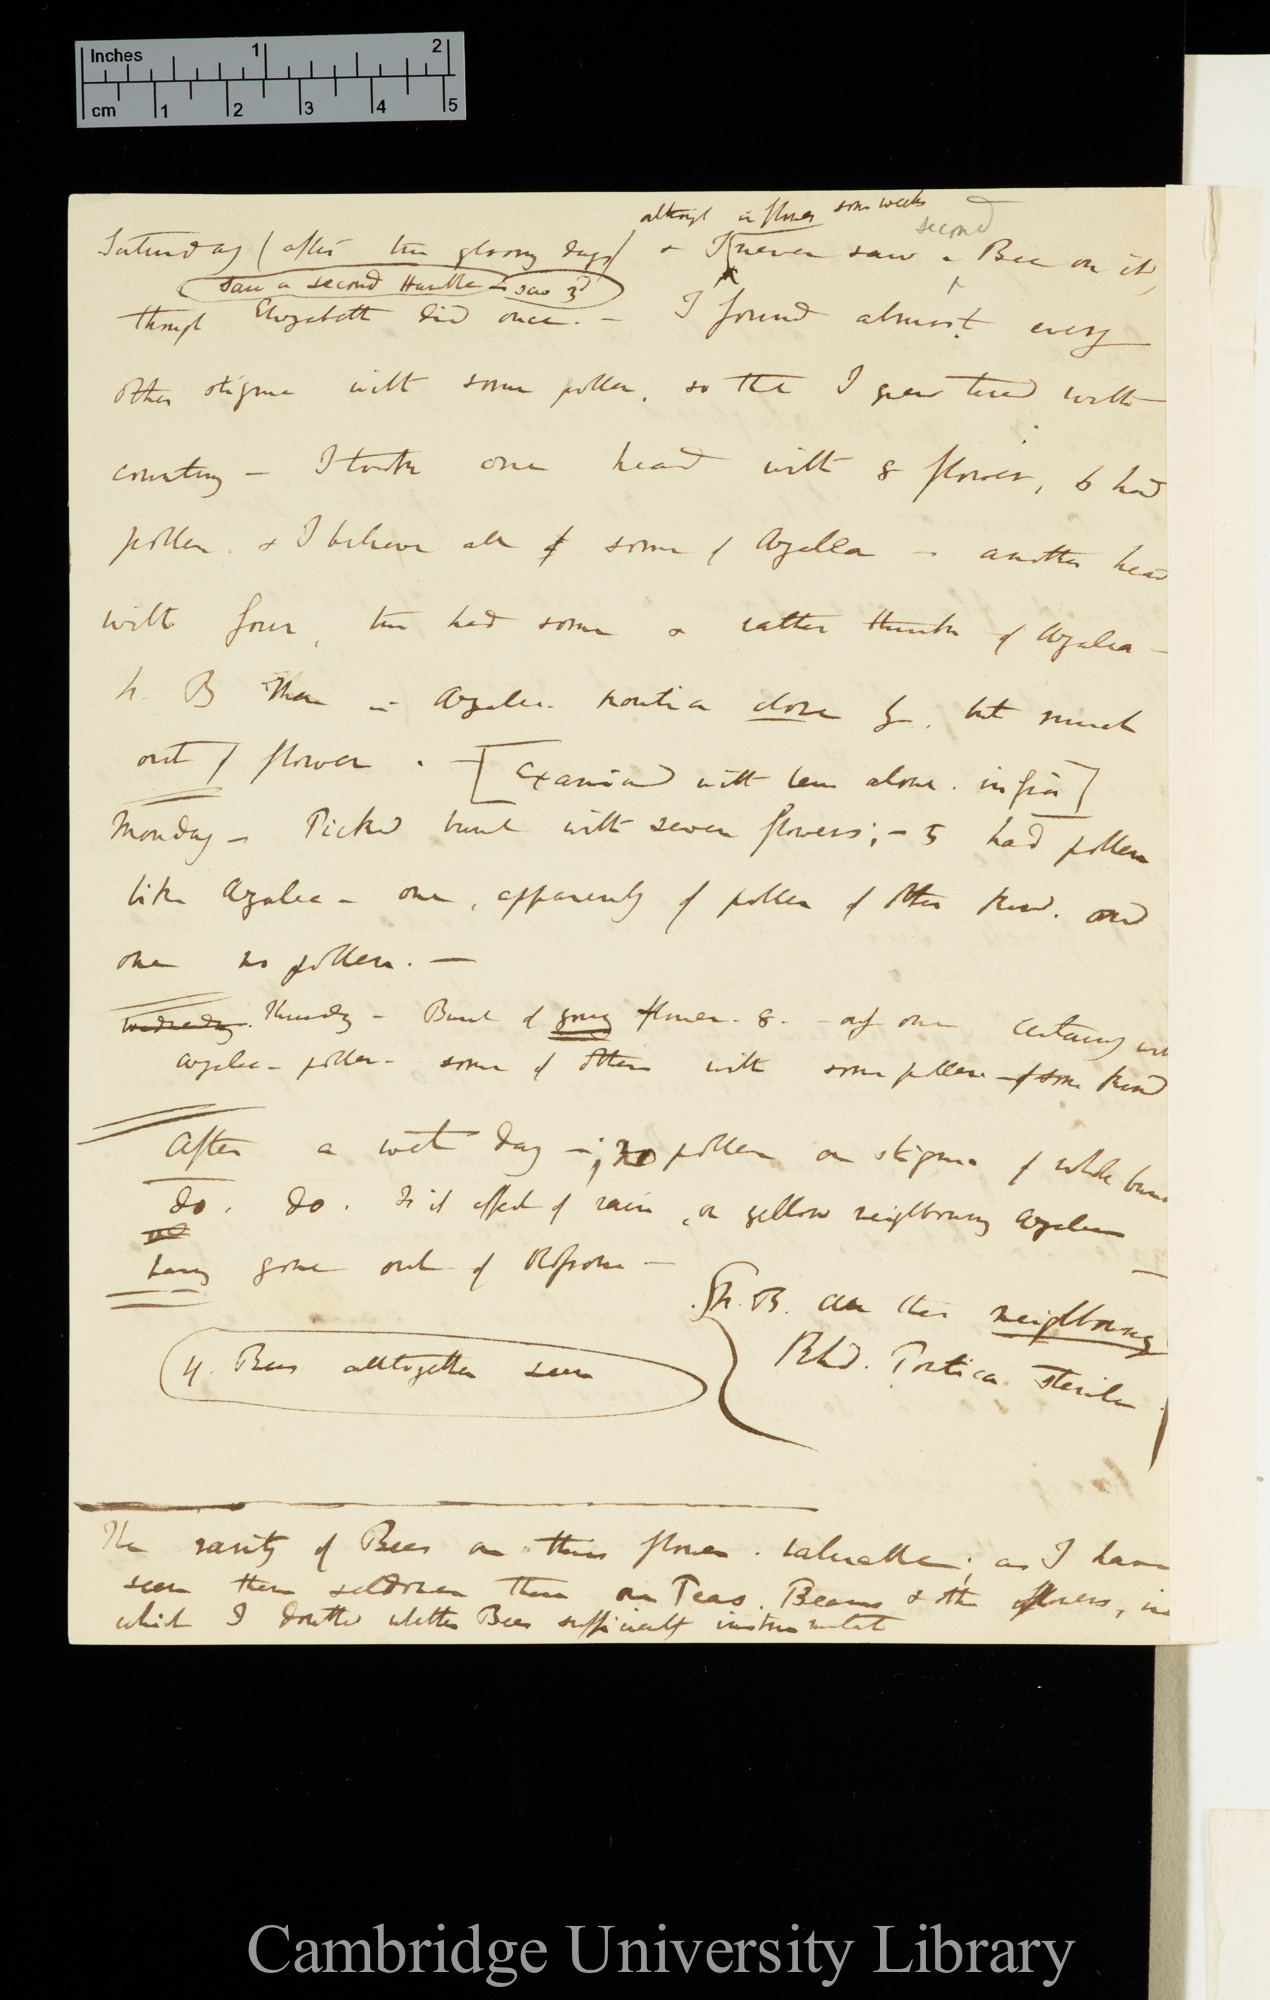 Inches 1 2
cm 1 2 3 4 5
although in flower some weeks
second
Saturday (after two gloomy days) & I never saw a Bee on it,
saw a second Humble — saw 3d
though Elizabeth did once. — I found almost every
other stigma with some pollen, so tht I grew tired with
counting — I took one head with 8 flowers, 6 had
pollen & I believe all of some of Azalea — another head
with four, two had some & rather think of Azalea —
N. B There is Azalea pontica close by, but much
out of flower. — [Examined with lens alone. in fair]
Monday — Picked bunch with seven flowers; — 5 had pollen
like Azalea — one, apparently of pollen of other kind. and
one no pollen. —
Wednesday Thursday — Bunch of young flower. 8. — of one certainly with
azalea-pollen — some of others with some pollen of some kind
After a wet day —; no pollen on stigma of whole bunch
do. do. Is it effect of rain, or yellow neighbouring Azaleas
having gone out of Blossom —
N.B. are this neighbouring
Rhod. Pontica sterile.
4. Bees alltogether seen
The rarity of Bees on these flower. valuable; as I have
seen them seldomer than on Peas. Beans & other flowers, in
which I doubted whether Bees sufficiently instrumental
Cambridge University Library